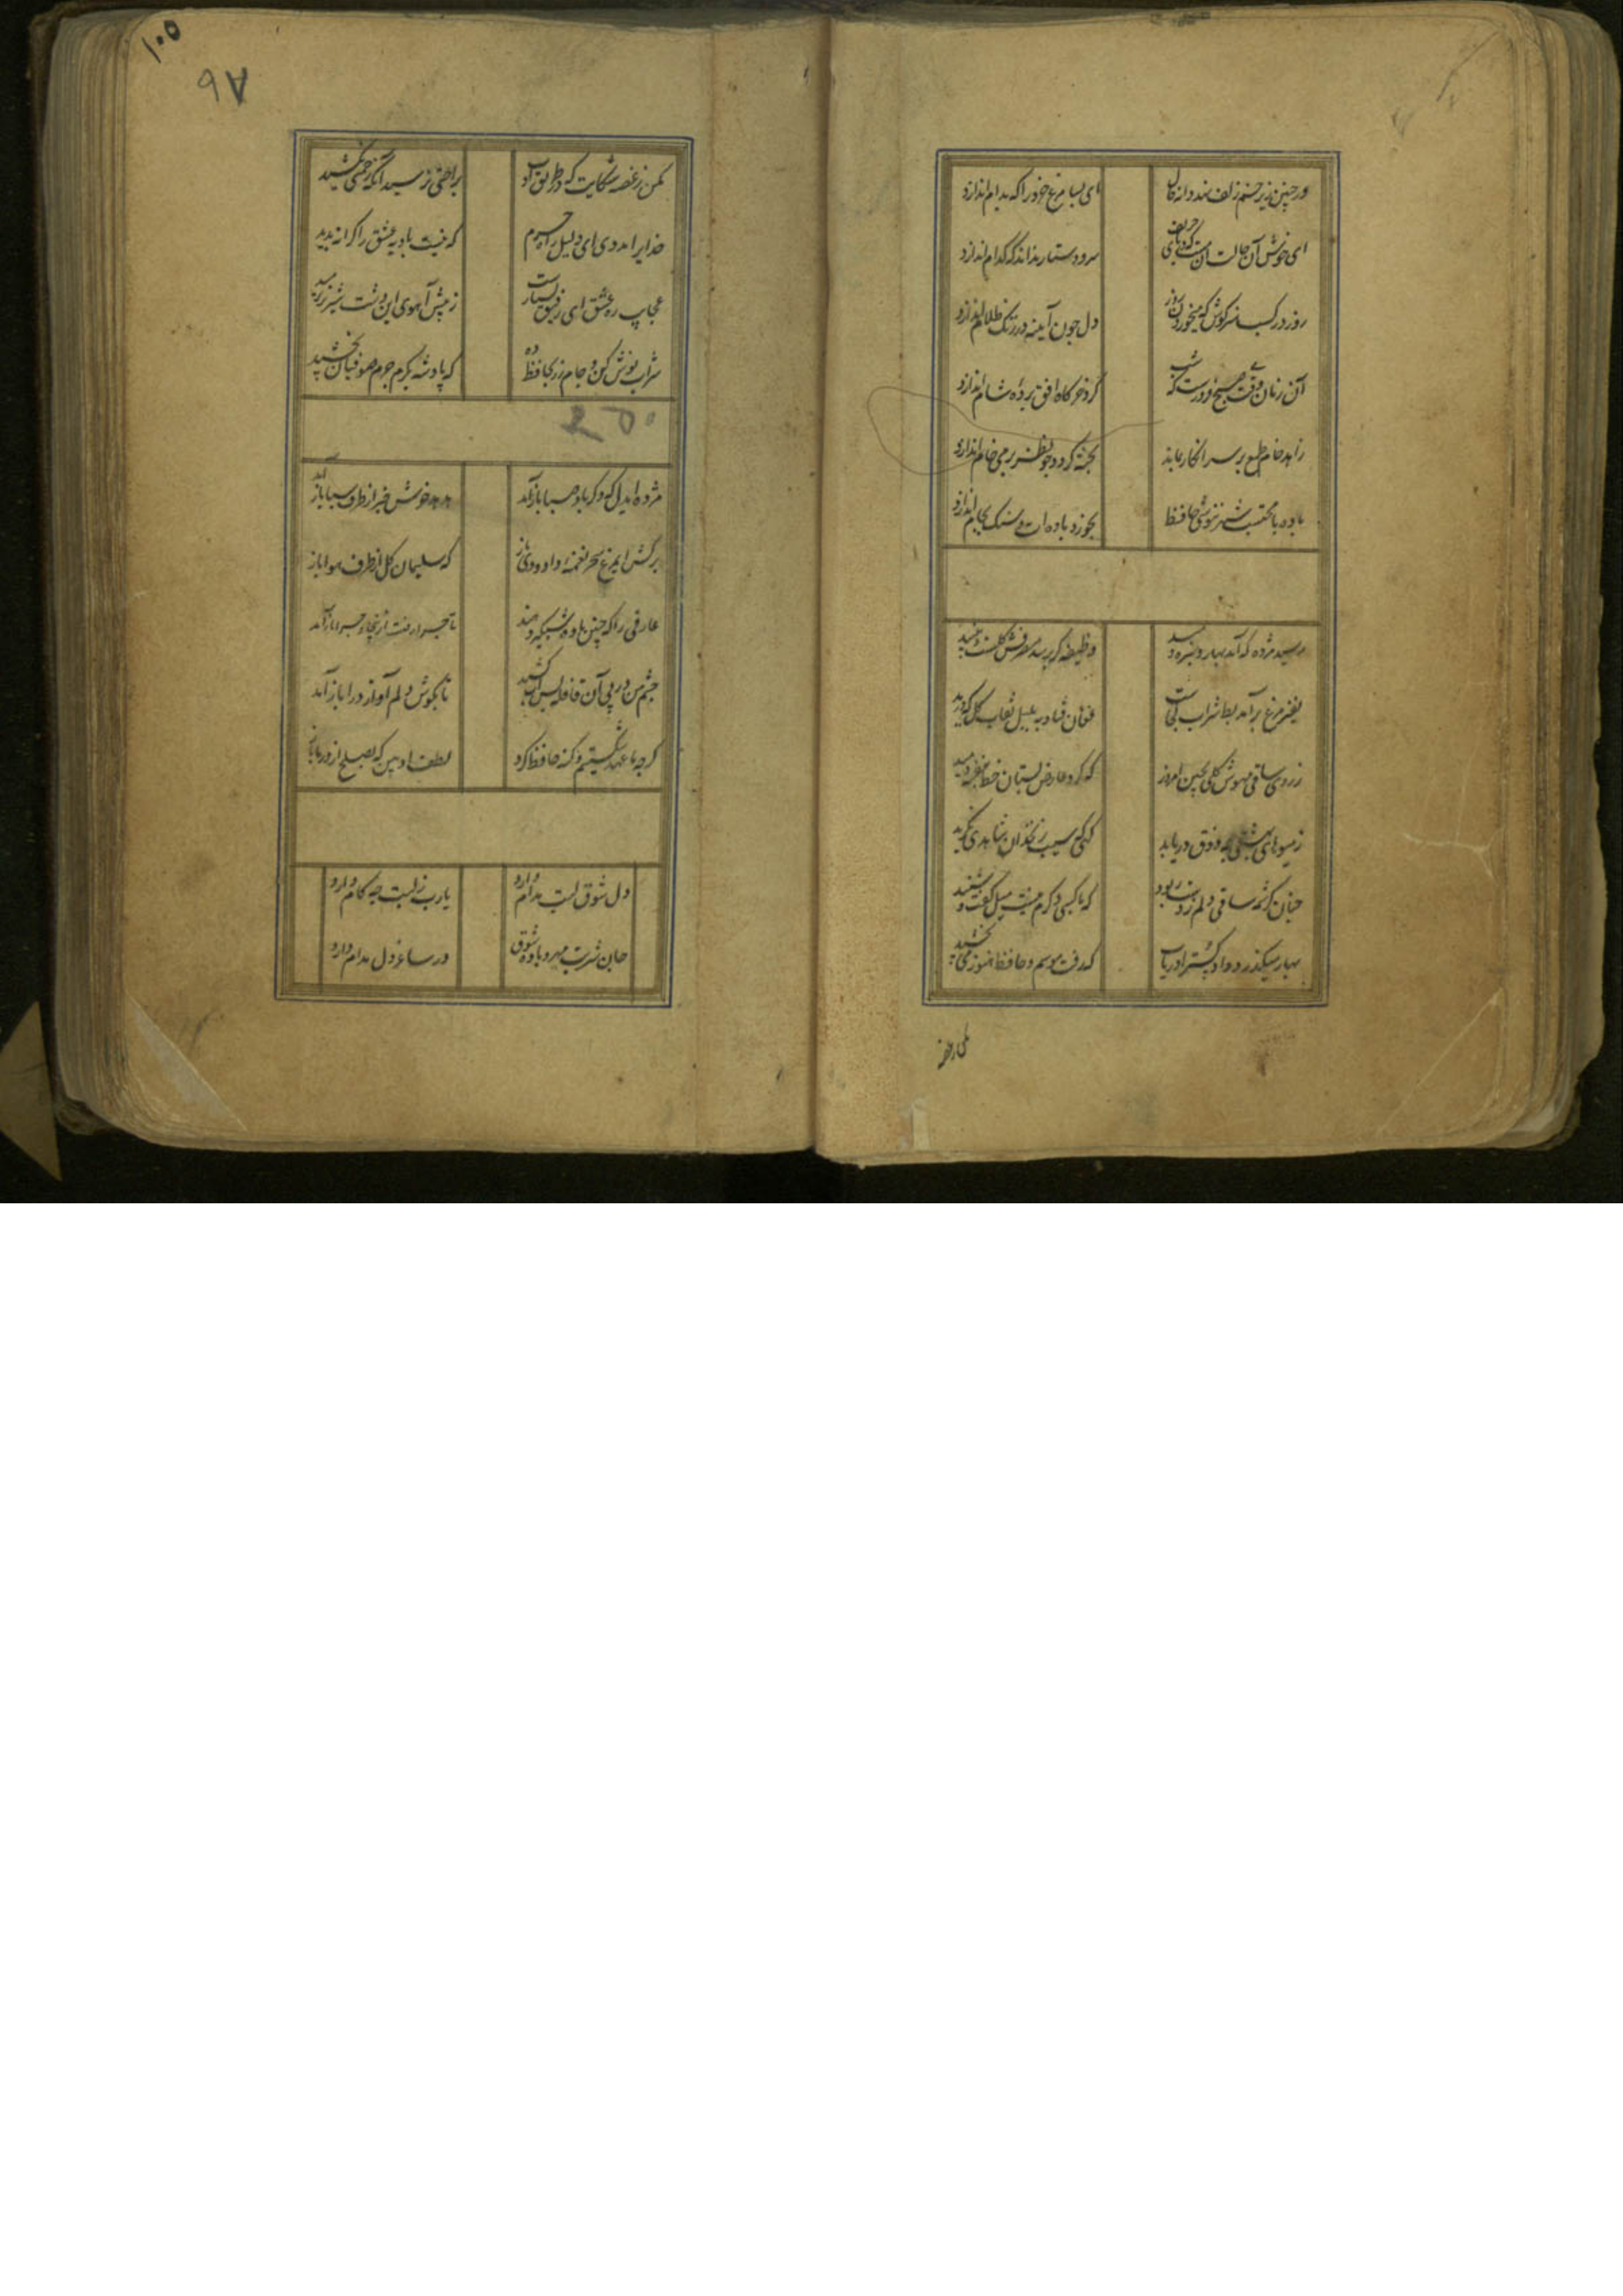 ور چنین زیر خم زلف نهد دانه خال
ای بسا مرغ خرد را که بدام اندازد
ای خوش آن حالت آن مست که در پای حریف
سر و دستار نداند که کدام اندازد
روز در کسب هنر کوش که می خوردن روز
دل چون آینه در زنگ ظلام اندازد
آن زمان وقت می صبح فروغست که شب
گرد خرگاه افق پرده شام اندازد
زاهد خام طمع بر سر انکار بماند
پخته گردد چو نظر بر می خام اندازد
باده با محتسب شهر ننوشی حافظ
بخورد باده ات و سنگ بجام اندازد
رسید مژده که آمد بهار و سبزه دمید
وظیفه گر برسد مصرفش گلست و نبید
صفیر مرغ برآمد بط شراب کجاست
فغان فتاد به بلبل نقاب گل که درید
ز روی ساقی مهوش گلی بچین امروز
که گرد عارض بستان خط بنفشه دمید
ز میوهای بهشتی چه ذوق دریابد
کسی که سیب زنخدان شاهدی نگزید
چنان کرشمه ساقی دلم ز دست ربود
که با کسی دگرم نیست میل گفت و شنید
بهار میگذرد دادگسترا دریاب
که رفت موسم و حافظ هنوز می نچشید
مکن ز غصه
۱۰۵
۹۷
مکن ز غصه شکایت که در طریق ادب
براحتی نرسید آنکه زحمتی نکشید
خدایرا مددی ای دلیل راه حرم
که نیست بادیه عشق را کرانه پدید
عجایب ره عشق ای رفیق بسیار است
ز پیش آهوی این دشت شیر نر برمید
شراب نوش کن و جام زر بحافظ ده
که پادشه بکرم جرم صوفیان بخشید
مژده ایدل که دگر باد صبا باز آمد
هدهد خوش خبر از طرف سبا باز آمد
برکش ایمرغ سحر نغمه داودی باز
که سلیمان گل از طرف هوا باز
عارفی را که چنین باده شبگیر دهند
تا چرا رفت از اینجا و چرا باز آمد
چشم من در پی آن قافله بس آب کشید
تا بگوش دلم آواز درا باز آمد
گرچه ما عهد شکستیم و گنه حافظ کرد
لطف او بین که بصلح از در ما باز
دل شوق لبت مدام دارد
یارب ز لبت چه کام دارد
جان شربت مهر و باده شوق
در ساغر دل مدام دارد